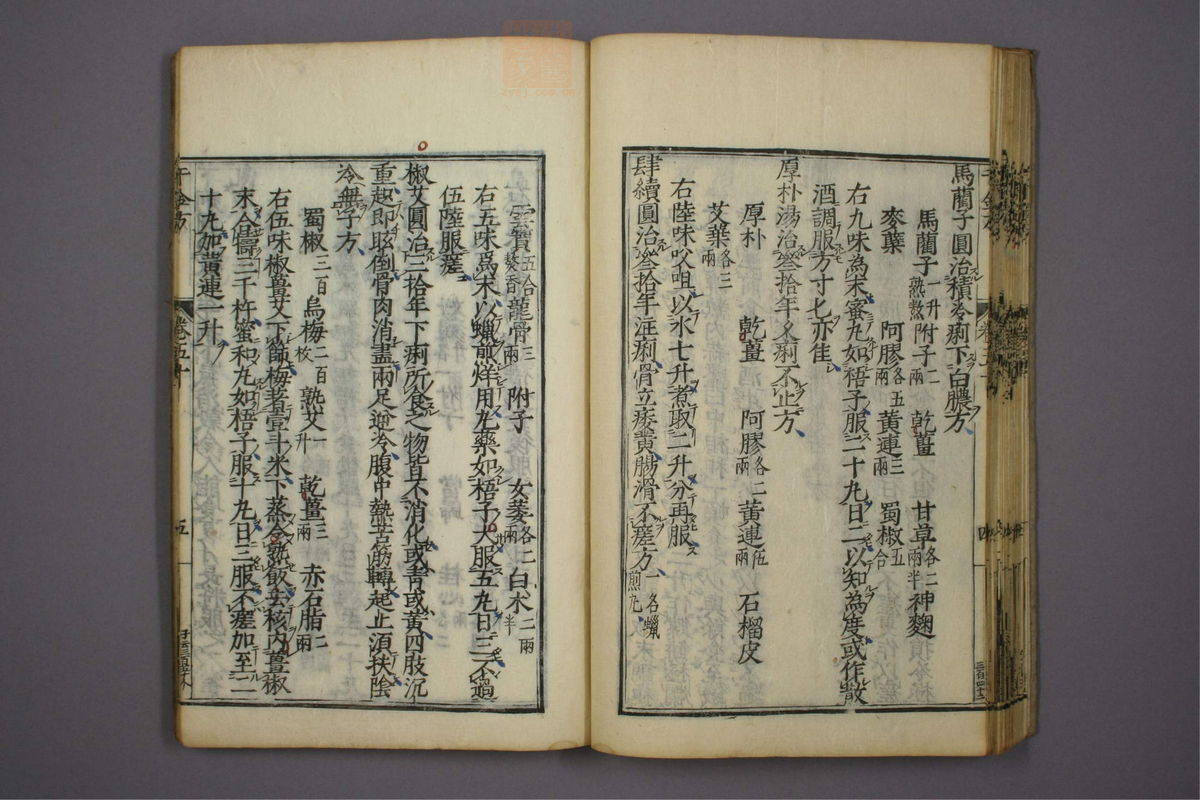 馬藺子圓治積冷痢下白膿方
馬藺子一升熟熬附子二兩 乾薑 甘草各二兩半神麴
麥蘗 阿膠各五兩黃連三兩 蜀椒五合
右九味為末蜜丸如梧子服二十丸日二以知為度或作散
酒調服方寸匕亦佳
厚朴湯治叁拾年久痢不止方
厚朴 乾薑 阿膠各二兩黃連伍兩 石榴皮
艾葉各三兩
右陸味㕮咀以水七升煮取二升分再服
肆續圓治叁拾年注痢骨立痿黃腸滑不瘥方一名蠟煎丸
雲實五合熬香龍骨三兩 附子 女萎各二兩白朮二兩半
右五味為末以蠟煎烊用丸藥如梧子大服五丸日三不過
伍陸服瘥
椒艾圓治三拾年下痢所食之物皆不消化或青或黃四肢沉
重起即眩倒骨肉消盡兩足逆冷腹中熱苦筋轉起止須扶陰
冷無子方
蜀椒三百 烏梅二百枚 熟艾一升 乾薑三兩 赤石脂二兩
右伍味椒薑艾下篩梅著壹斗米下蒸令熟飯去核內薑椒
末合擣三千杵蜜和丸如梧子服十丸日三服不瘥加至二
十丸加黃連一升
千金方
卷五十
五